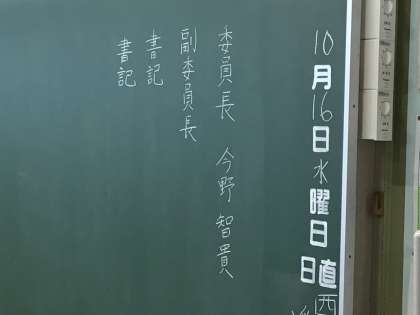 10月16日水曜日
日直
委員長 今野智貴
副委員長
書記
書記